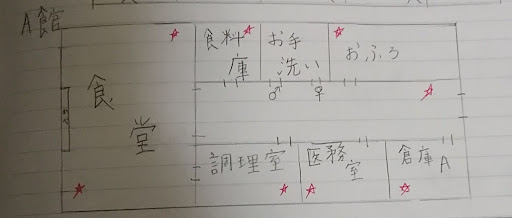 A館
食料
庫
お手
洗い
おふろ
♂
♀
食
堂
調理室
医務
室
倉庫
A